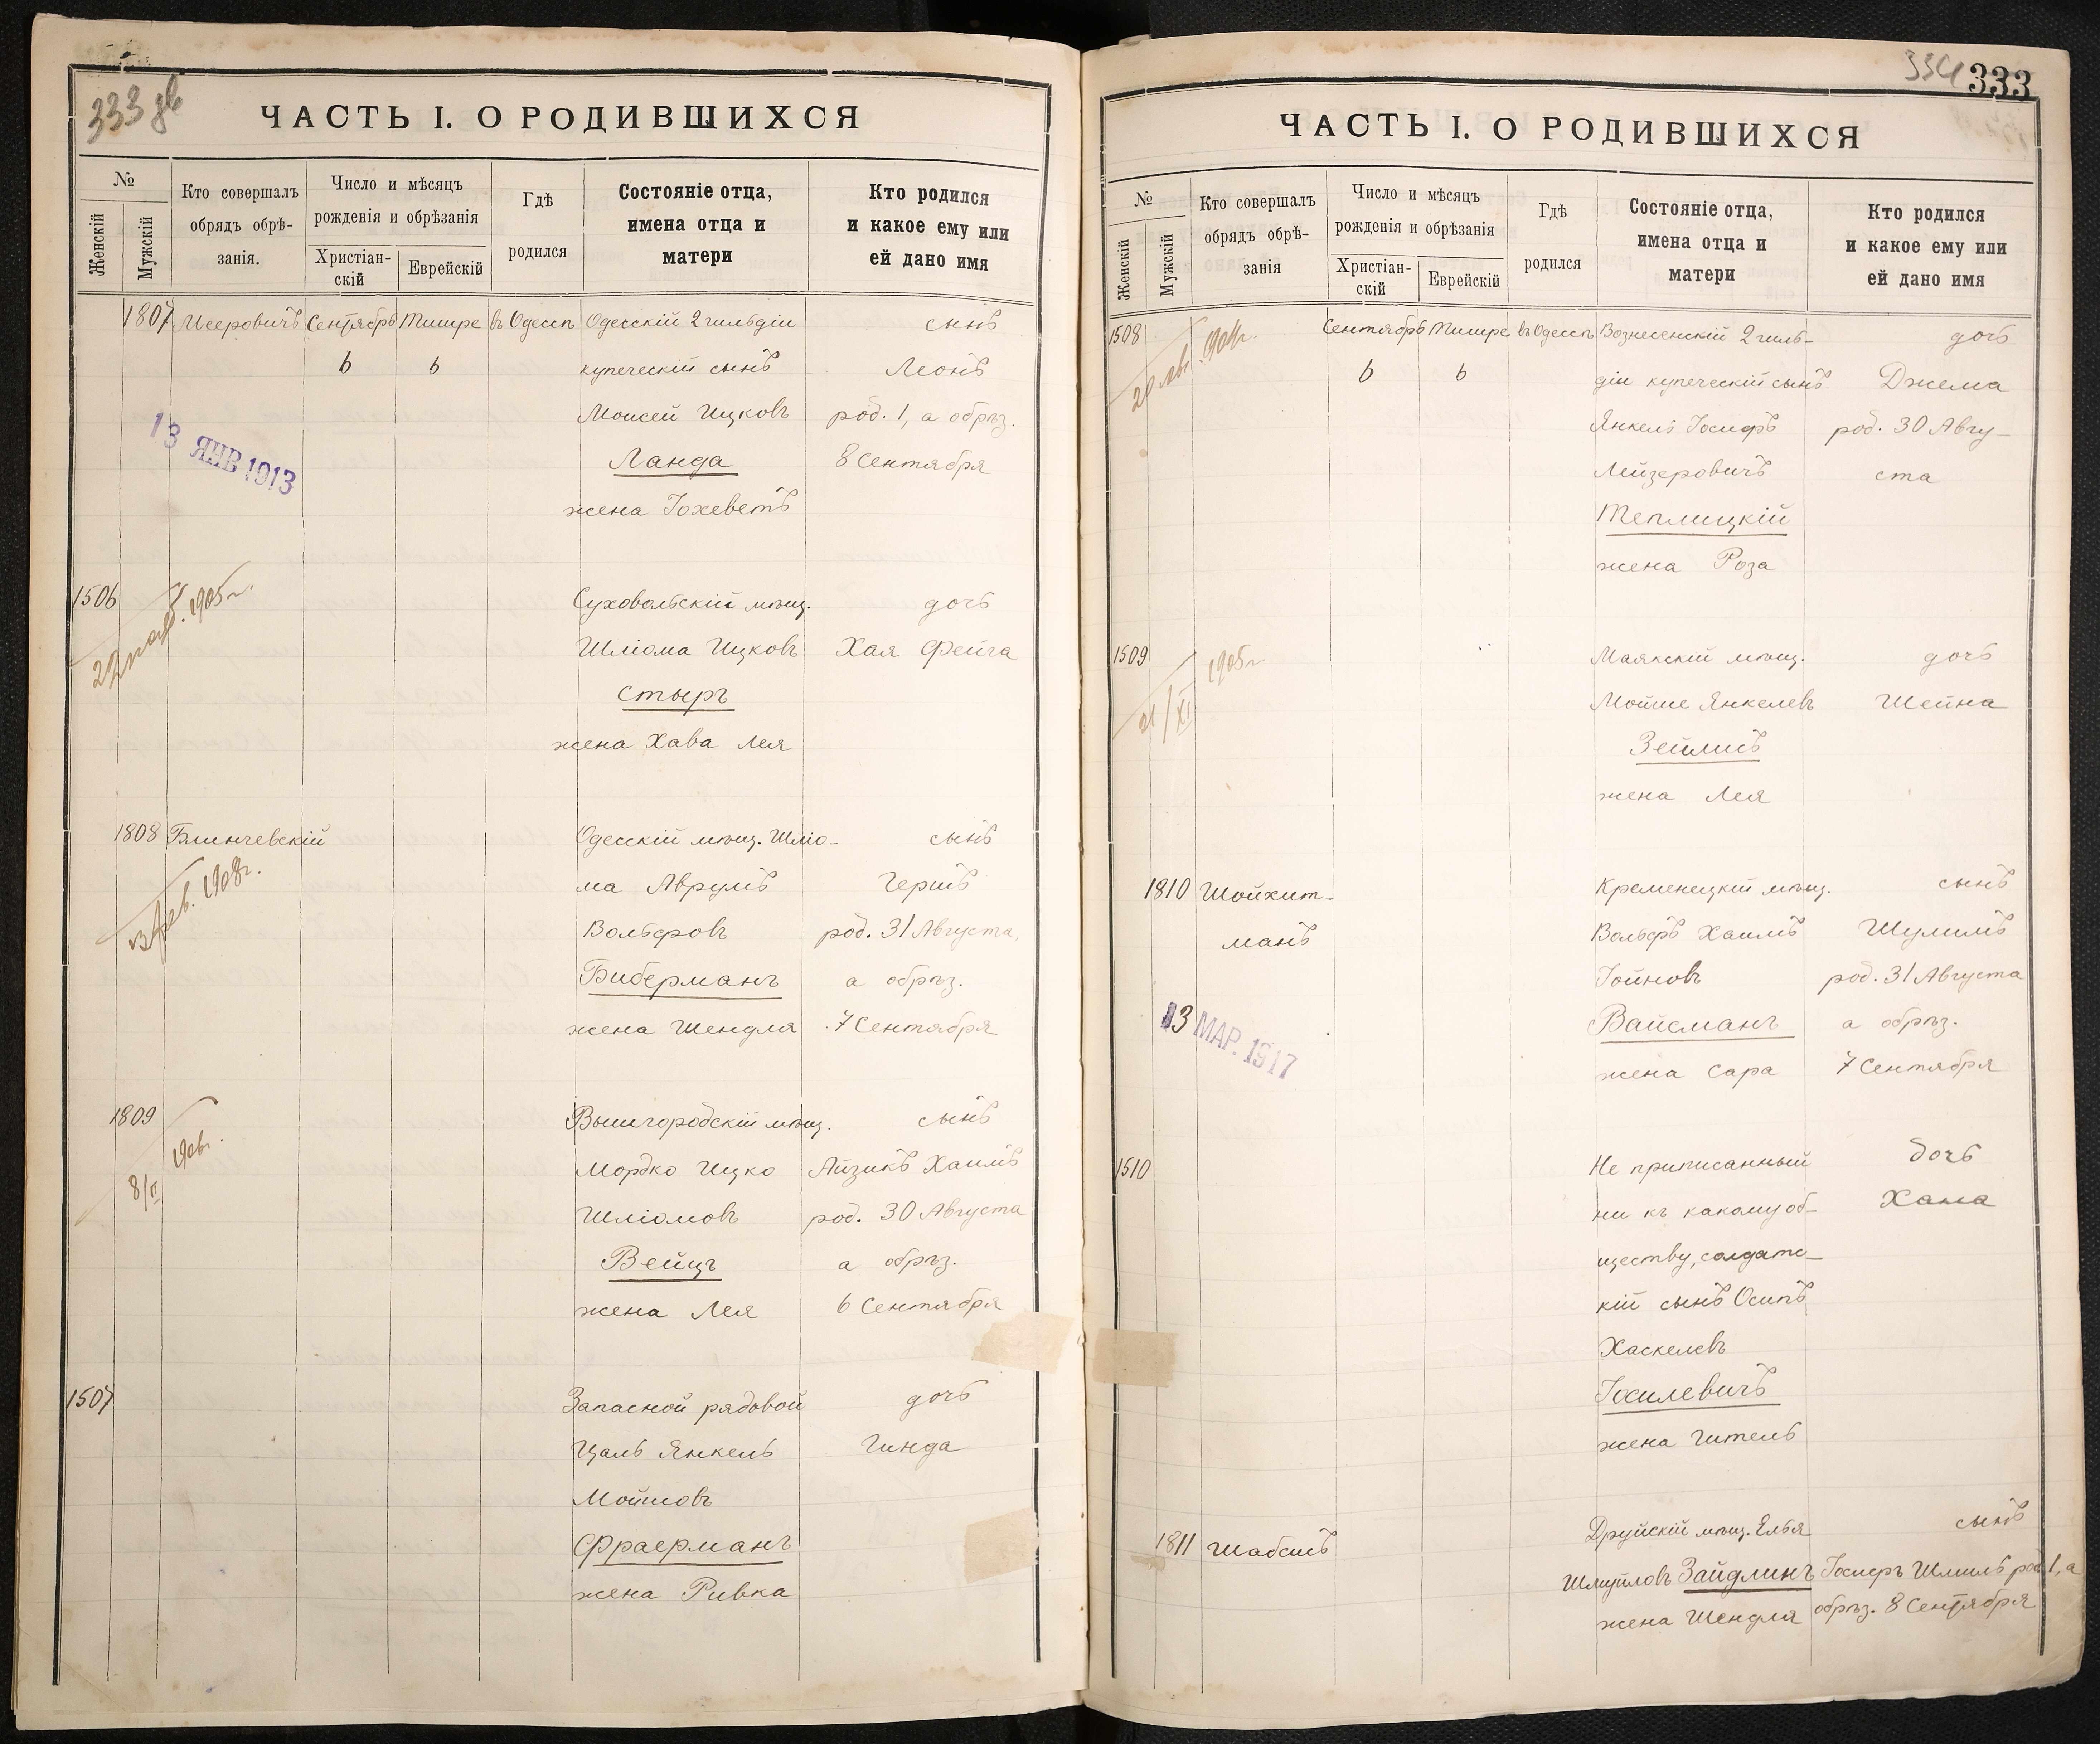 333 зв
ЧАСТЬ I. О РОДИВШИХСЯ
№
Женскій
Мужскій
Кто совершалъ
обрядъ обрѣ-
занія.
Число и мѣсяцъ
рожденія и обрѣзанія
Христіан-
скій
Еврейскій
Гдѣ
родился
Состояніе отца,
имена отца и
матери
Кто родился
и какое ему или
ей дано имя
1807 Мееровичъ Сентябрь Тишре въ Одессѣ Одесскій 2 гильдіи сынъ
6 6 купеческій сынъ Леонъ
Моисей Ицковъ род. 1, а обрѣз.
Ланда 8 Сентября
жена Іохеветъ
13 ЯНВ 1913
1506 Суховольскій мѣщ. дочь
Шліома Ицковъ Хая Фейга
Стыръ
жена Хава Лея
1905 г.
1808 Блинчевскій Одесскій мѣщ. Шліо- сынъ
ма Аврумъ Гершъ
Вольфовъ род. 31 Августа,
Биберманъ а обрѣз.
жена Шендля 7 Сентября
фев. 1908 г.
1809 Вышгородскій мѣщ. сынъ
Мордко Ицко Айзикъ Хаимъ
Шліомовъ род. 30 Августа
Вейцъ а обрѣз.
жена Лея 6 Сентября
8/II
1507 Запасной рядовой дочь
Цаль Янкель Гинда
Мошковъ
Фраерманъ
жена Ривка
334 333
ЧАСТЬ I. О РОДИВШИХСЯ
№
Женскій
Мужскій
Кто совершалъ
обрядъ обрѣ-
занія
Число и мѣсяцъ
рожденія и обрѣзанія
Христіан-
скій
Еврейскій
Гдѣ
родился
Состояніе отца,
имена отца и
матери
Кто родился
и какое ему или
ей дано имя
1508 Сентябрь Тишре въ Одессѣ Вознесенскій 2 гиль- дочь
6 6 діи купеческій сынъ Джема
Янкель Іосифъ род. 30 Авгу-
Лейзеровичъ ста
Теплицкій
жена Роза
1509 Маякскій мѣщ. дочь
Мойше Янкелевъ Шейна
Зейлисъ
жена Лея
21/XI 1905 г.
1810 Шойхит- Кременецкій мѣщ. сынъ
манъ Вольфъ Хаимъ Шулимъ
Іойновъ род. 31 Августа
Вайсманъ а обрѣз.
жена Сара 7 Сентября
13 МАР. 1917
1510 Не приписанный дочь
ни къ какому об- Хана
ществу, солдатс-
кій сынъ Осипъ
Хаскелевъ
Іосилевичъ
жена Гитель
1811 Шабсисъ Друйскій мѣщ. Елья сынъ
Шмуйловъ Зайдлинъ Іосифъ Шмиль род. 1, а
жена Шендля обрѣз. 8 Сентября